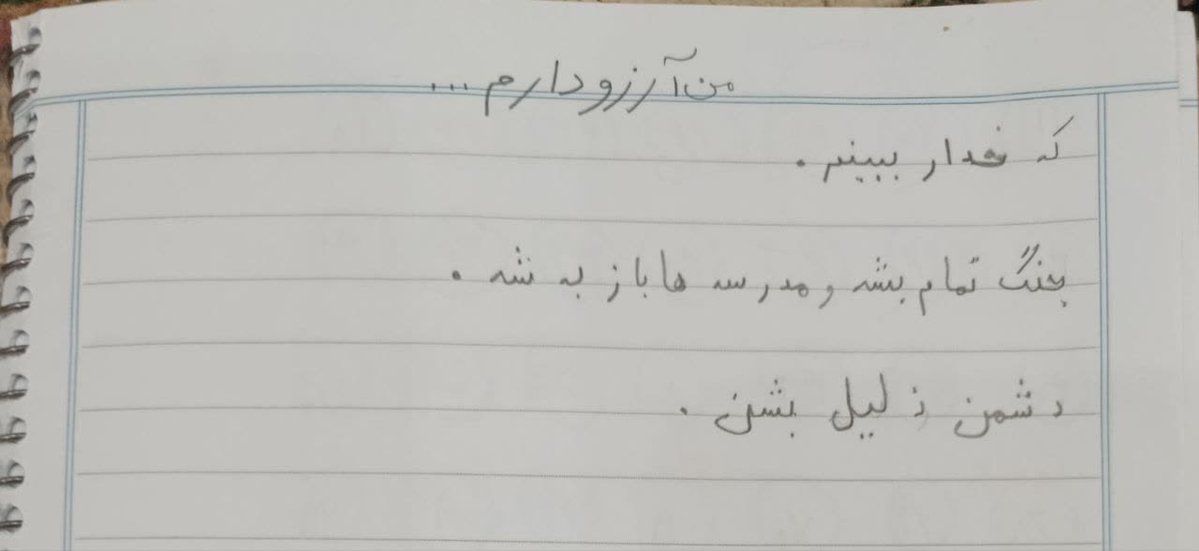 من آرزو دارم ...
که خدار ببینم.
جنگ تمام بشه و مدرسه ها باز به شه.
دشمن ذلیل بشن.